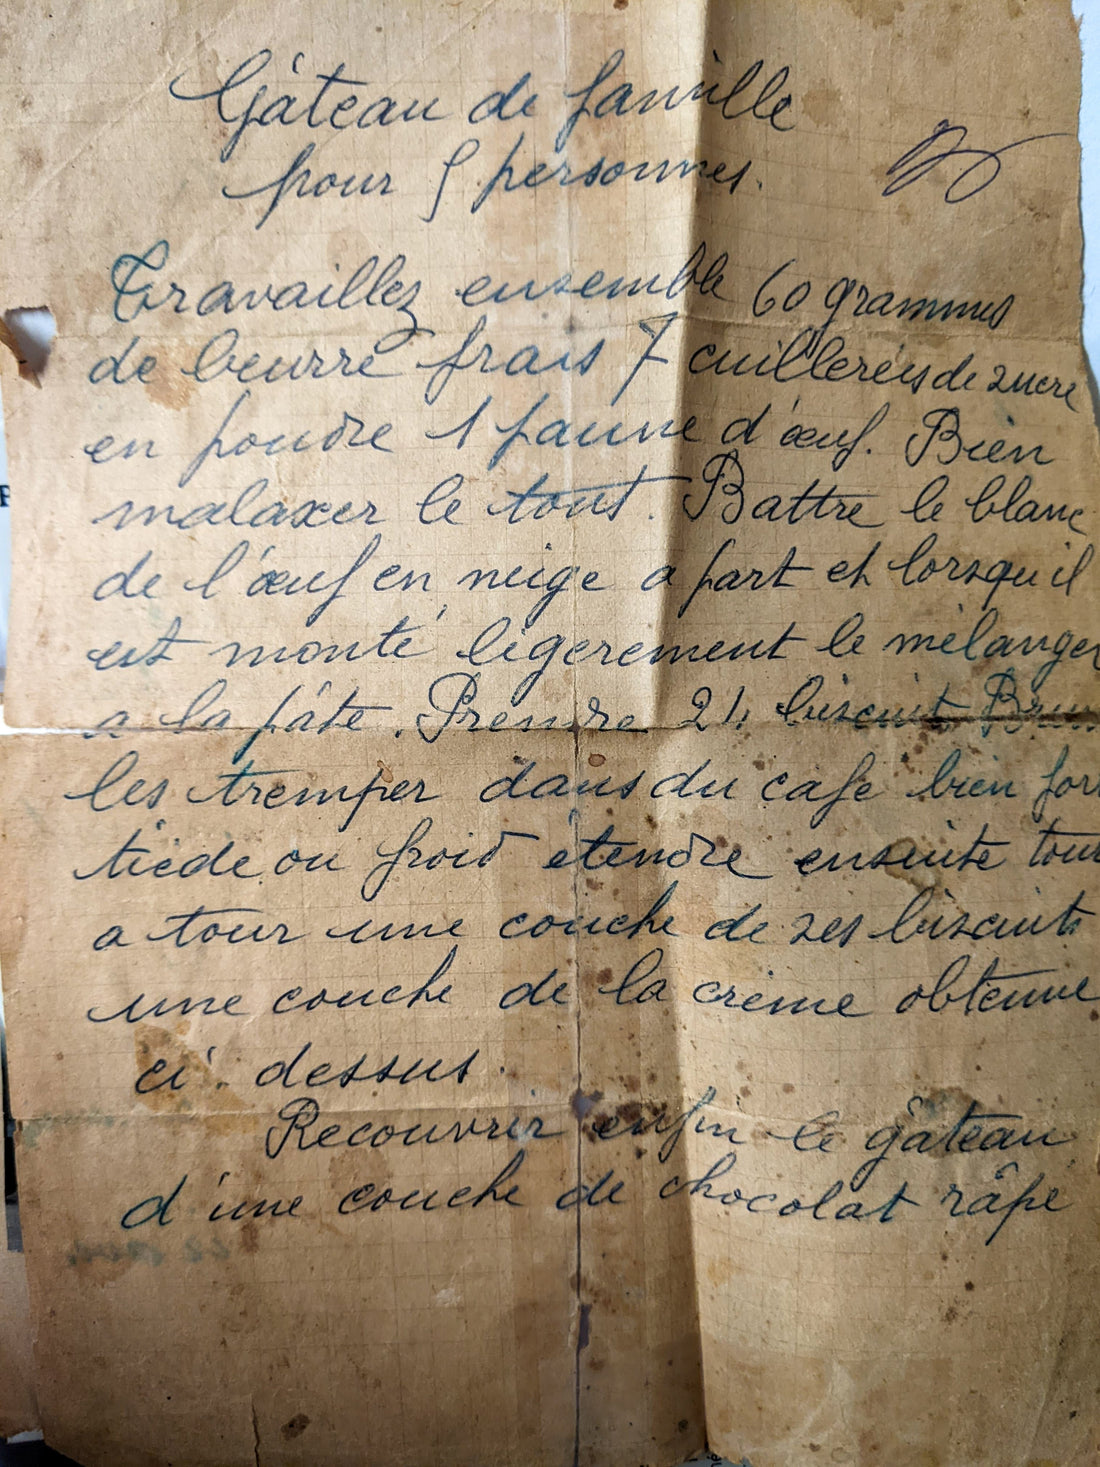 Gâteau de famille
pour 5 personnes.
Travaillez ensemble 60 grammes
de beurre frais 7 cuillerées de sucre
en poudre 1 jaune d'œuf. Bien
malaxer le tout. Battre le blanc
de l'œuf en neige a part et lorsqu'il
est monté légerement le mélanger
a la pâte. Prendre 24 biscuit Brun
les tremper dans du café bien fort
tiède ou froid étendre ensuite tour
a tour une couche de ses biscuits
une couche de la crème obtenue
ci. dessus.
Recouvrir enfin le gâteau
d'une couche de chocolat râpé